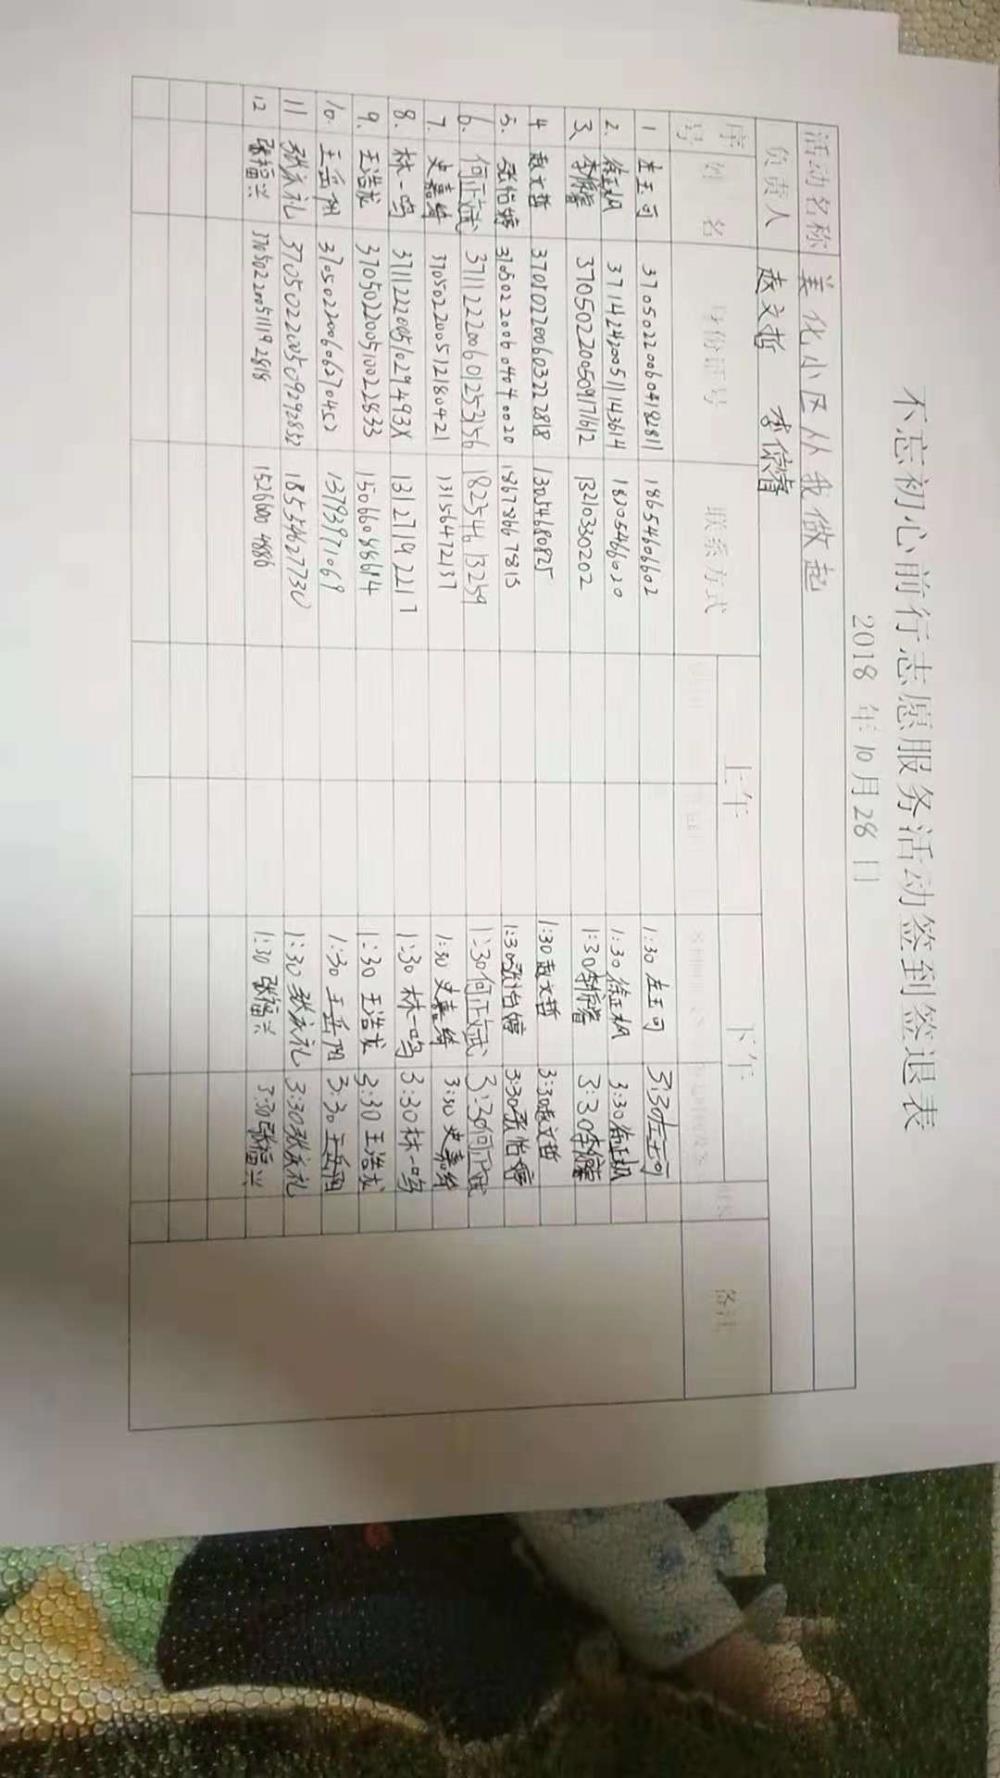 不忘初心前行志愿服务活动签到签退表
2018 年 10 月 28 日
活动名称 美化小区从我做起
负责人 赵文哲 李
序号 姓名 身份证号 联系方式 上午 下午 备注
1 左王可 370502200604182811 18654606602 1:30 左王可 3:30 左王可
2. 徐正枫 371424200511143614 18205466020 1:30 徐正枫 3:30 徐正枫
3、 370502200509171612 13210330202 1:30 3:30
4 赵文哲 370502200603222818 13054680825 1:30 赵文哲 3:30 赵文哲
5. 张怡婷 370502200604040020 18678667815 1:30 张怡婷 3:30 张怡婷
6. 何正斌 371122200601253156 18254613259 1:30 何正斌 3:30 何正斌
7. 史嘉绮 370502200512180421 13156472137 1:30 史嘉绮 3:30 史嘉绮
8. 林一鸣 37112220051029493X 13127192217 1:30 林一鸣 3:30 林一鸣
9. 王浩龙 370502200510022833 15066088684 1:30 王浩龙 3:30 王浩龙
10. 王岳阳 13793971069 1:30 王岳阳 3:30 王岳阳
11 张庆礼 370502200509292832 18554627730 1:30 张庆礼 3:30 张庆礼
12 张福兴 370502200511192818 15266004886 1:30 张福兴 3:30 张福兴